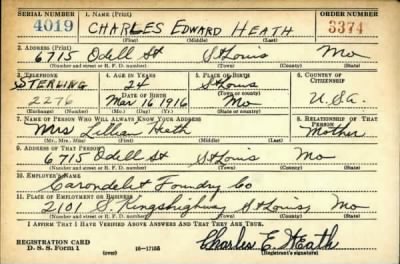 SERIAL NUMBER 1. NAME (Print) ORDER NUMBER
4019 CHARLES EDWARD HEATH 3374
(First) (Middle) (Last)
2. ADDRESS (Print)
6715 Odell St St Louis Mo
(Number and street or R. F. D. number) (Town) (County) (State)
3. TELEPHONE 4. AGE IN YEARS 5. PLACE OF BIRTH 6. COUNTRY OF CITIZENSHIP
STERLING 24 St Louis
DATE OF BIRTH (Town or county)
2276 Mar 16 1916 Mo U.S.A.
(Exchange) (Number) (Mo.) (Day) (Yr.) (State or country)
7. NAME OF PERSON WHO WILL ALWAYS KNOW YOUR ADDRESS 8. RELATIONSHIP OF THAT PERSON
Mrs Lillian Heath Mother
(Mr., Mrs., Miss) (First) (Middle) (Last)
9. ADDRESS OF THAT PERSON
6715 Odell St St Louis Mo
(Number and street or R. F. D. number) (Town) (County) (State)
10. EMPLOYER'S NAME
Carondelet Foundry Co
11. PLACE OF EMPLOYMENT OR BUSINESS
2101 S. Kingshighway St Louis, Mo
(Number and street or R. F. D. number) (Town) (County) (State)
I AFFIRM THAT I HAVE VERIFIED ABOVE ANSWERS AND THAT THEY ARE TRUE.
REGISTRATION CARD
D. S. S. Form 1 (over) 16-17105 Charles E. Heath
(Registrant's signature)